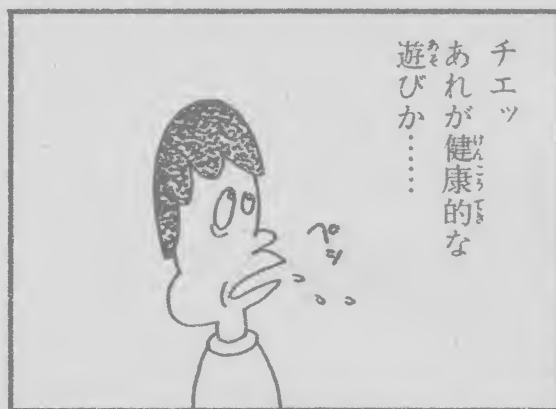 チエッ
あれが健康的な
遊びか……
ペッ